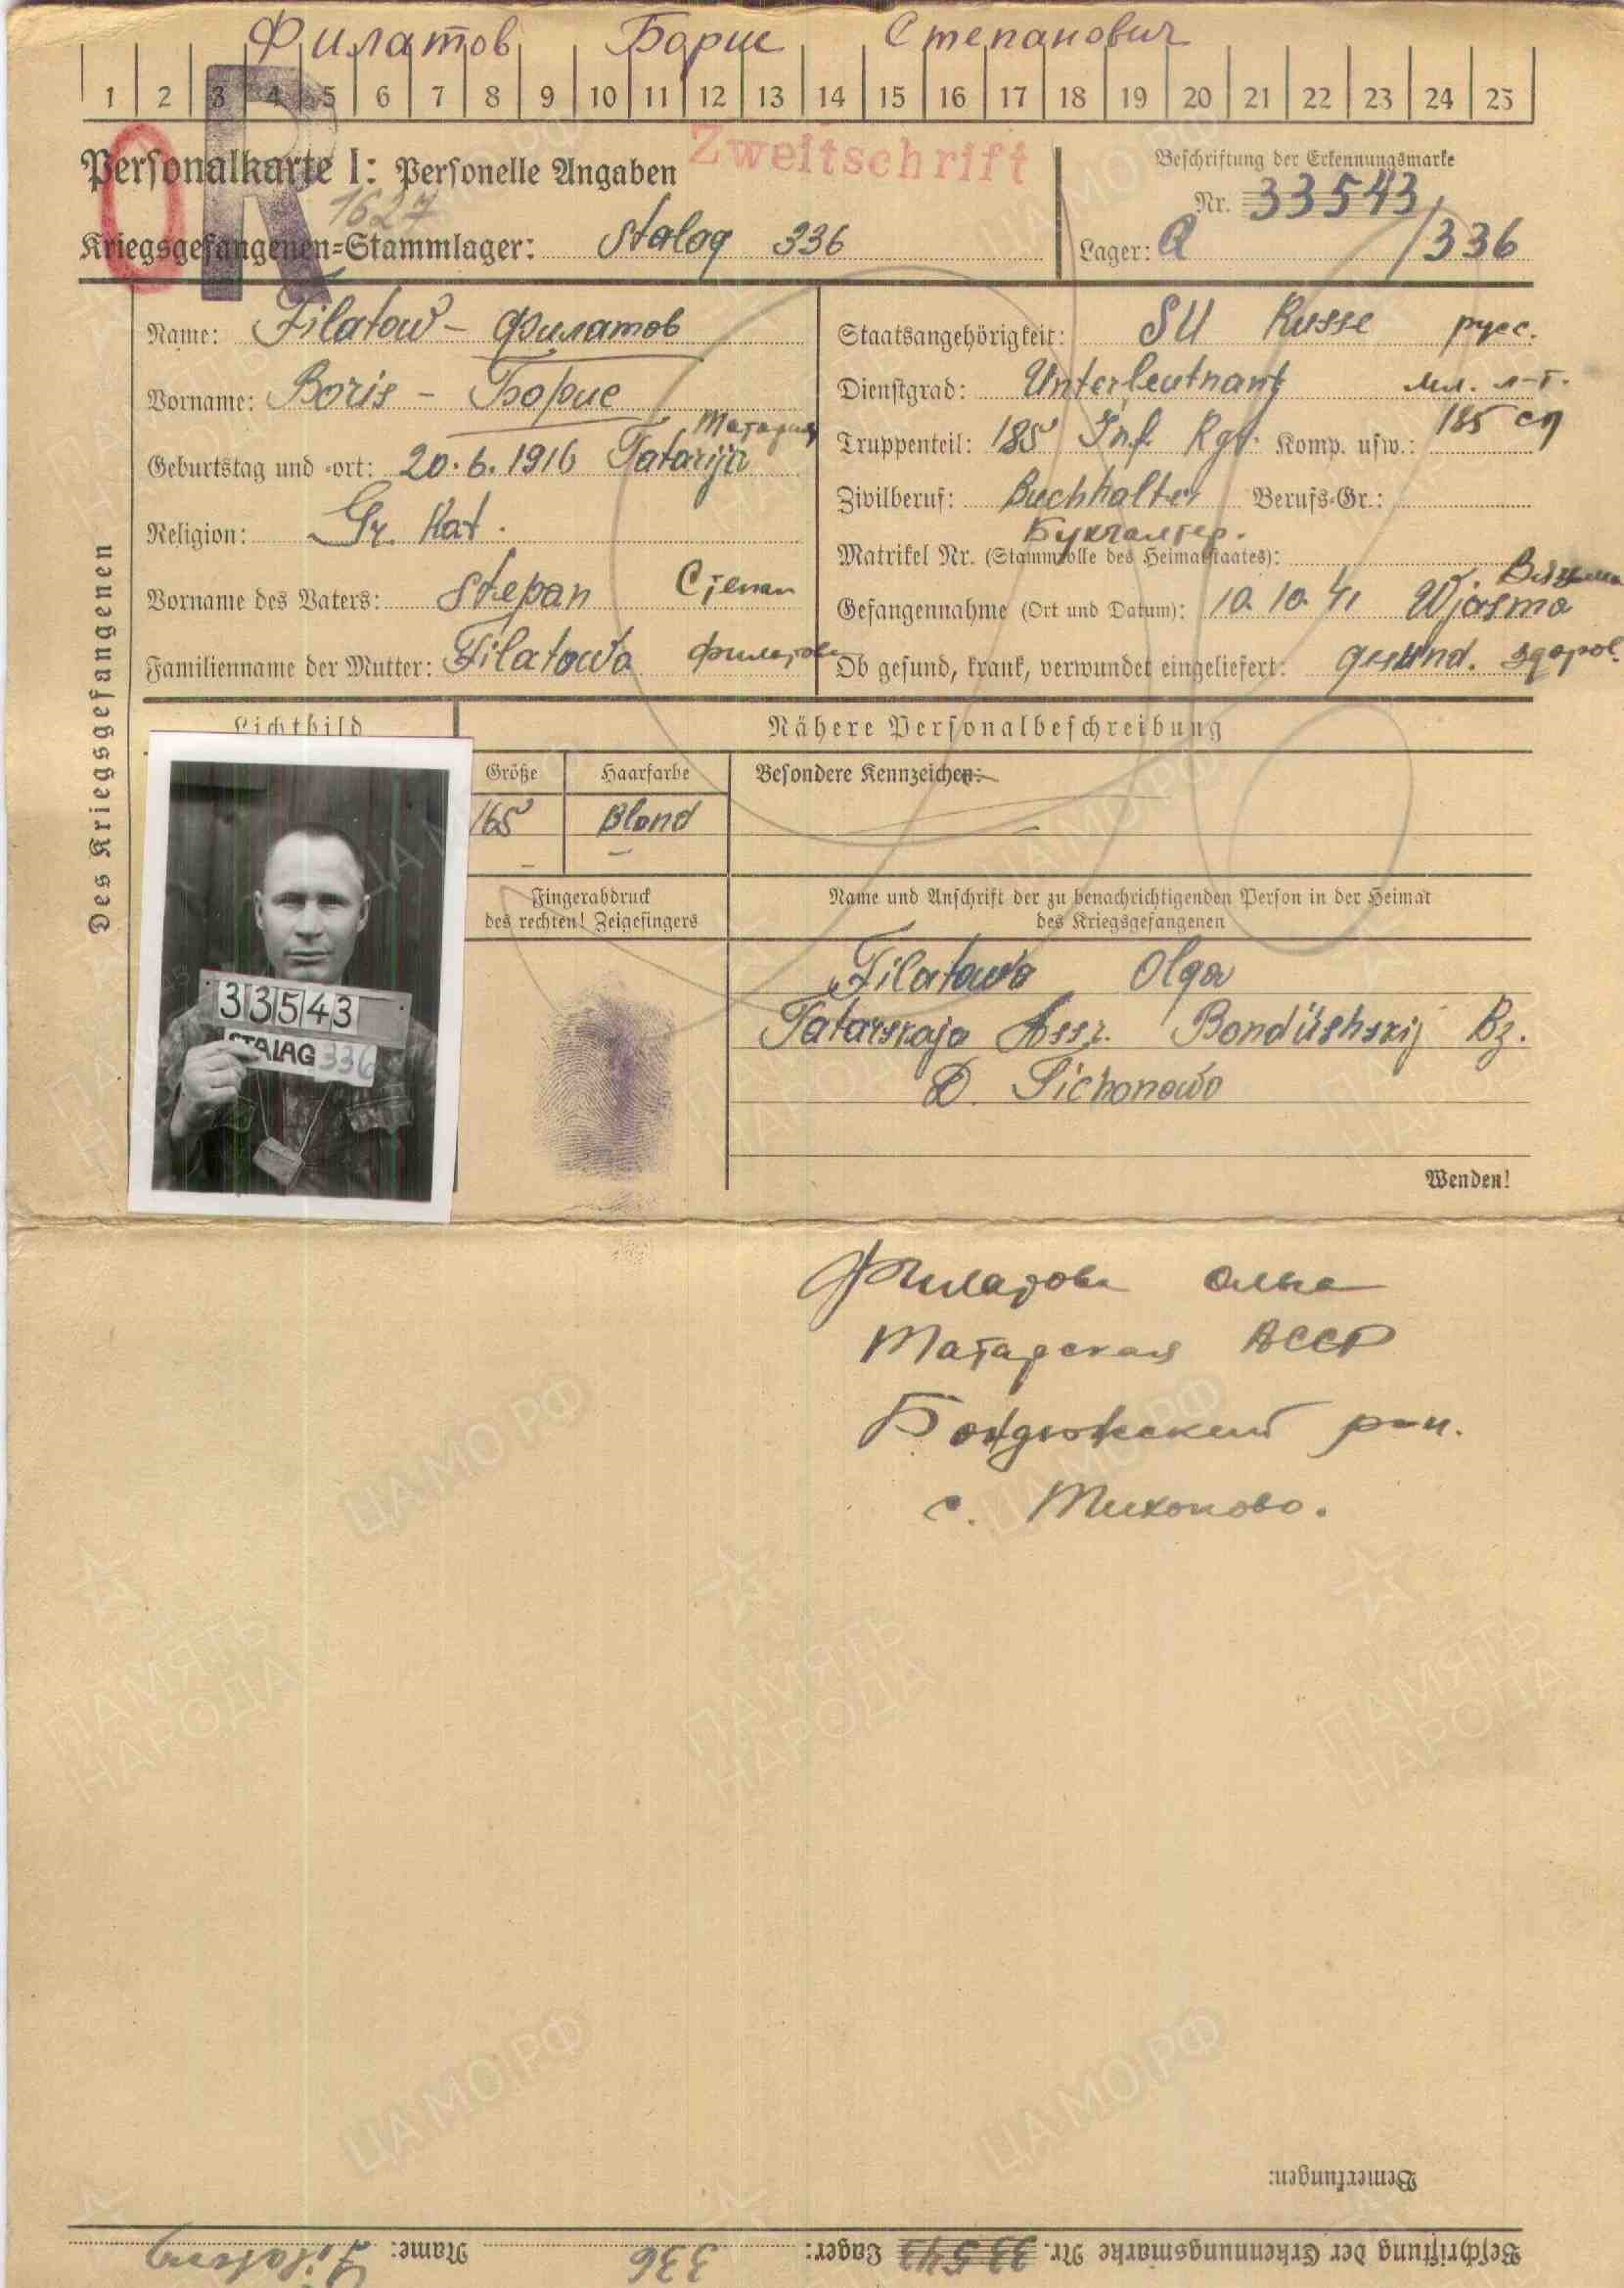 Филатов Борис Степанович
1 2 3 4 5 6 7 8 9 10 11 12 13 14 15 16 17 18 19 20 21 22 23 24 25
R
Zweitschrift
Personalkarte I: Personelle Angaben
1627
Kriegsgefangenen-Stammlager: Stalag 336
Beschriftung der Erkennungsmarke
Nr. 33543
Lager: /336
Des Kriegsgefangenen
Name: Filatow - Филатов
Vorname: Boris - Борис
Татария
Geburtstag und -ort: 20.6.1916 Tatarija
Religion: Gr. Kat.
Vorname des Vaters: Stepan Степан
Familienname der Mutter: Filatowa Филатова
Staatsangehörigkeit: SU Russe русс.
Dienstgrad: Unterleutnant мл. л-т.
Truppenteil: 185 Inf. Rgt. Komp. usw.: 185 сп
Zivilberuf: Buchhalter Berufs-Gr.:
Бухгалтер.
Matrikel Nr. (Stammrolle des Heimatstaates):
Gefangennahme (Ort und Datum): 10.10.41 Wjasma Вязьма
Ob gesund, krank, verwundet eingeliefert: gesund. здоров.
Lichtbild
Nähere Personalbeschreibung
Größe Haarfarbe Besondere Kennzeichen: -
165 Blond
33543
STALAG 336
Fingerabdruck
des rechten! Zeigefingers
Name und Anschrift der zu benachrichtigenden Person in der Heimat
des Kriegsgefangenen
Filatowa Olga
Tatarskaja Assr. Bondüshskij Bz.
D. Tichonowo
Wenden!
Филатова Ольга
Татарская АССР
Бондюжский р-н.
с. Тихоново.
Bemerkungen:
Beschriftung der Erkennungsmarke Nr. 33543 Lager: 336 Name: Filatow
ЦАМО.РФ
ПАМЯТЬ
НАРОДА